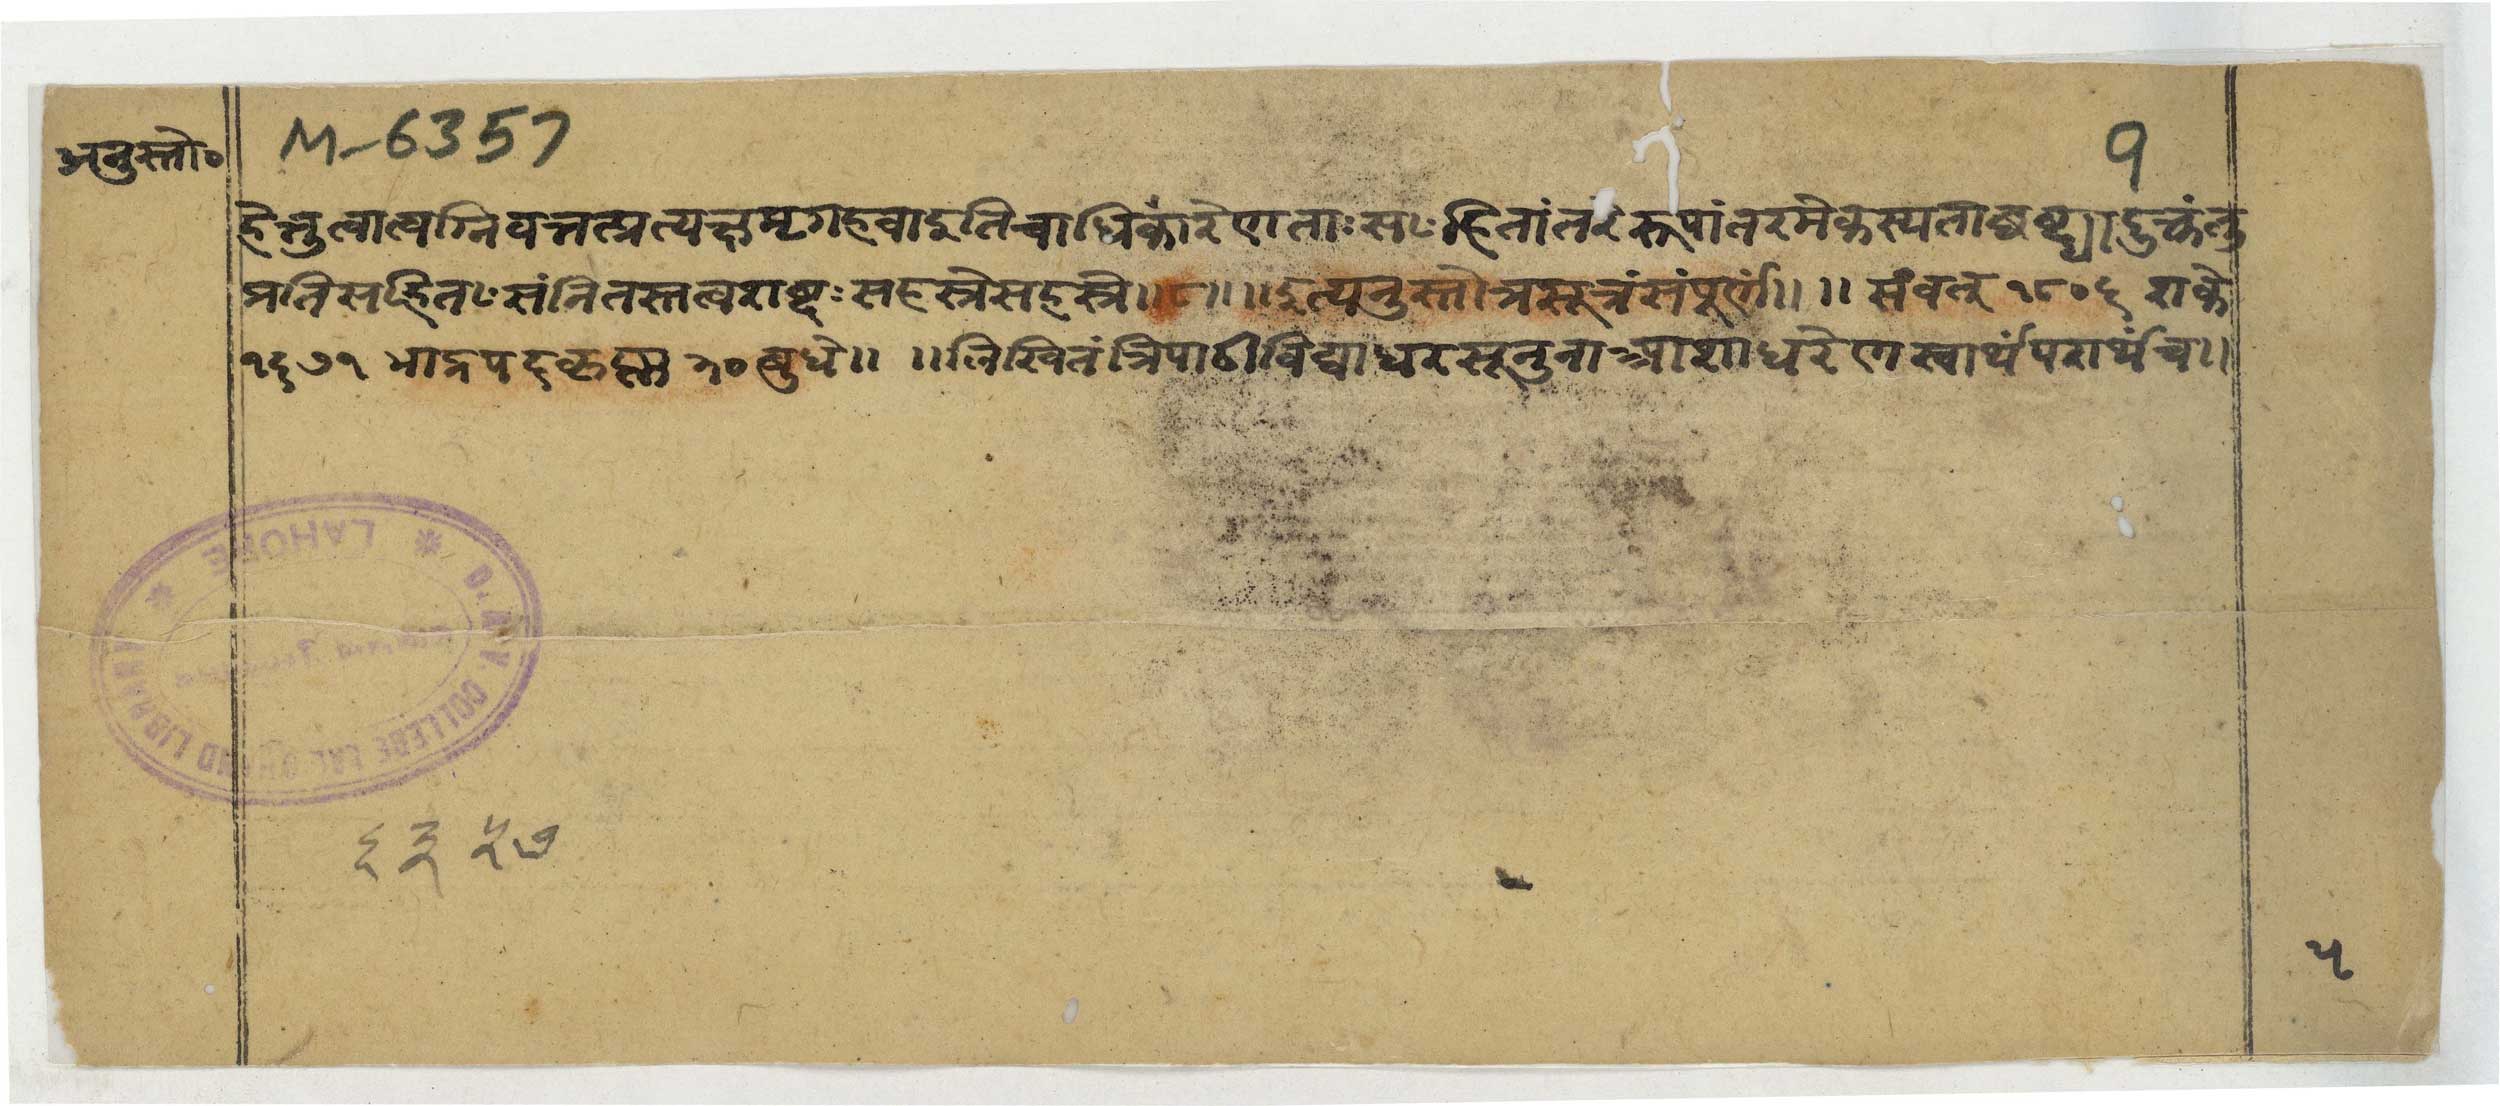 अनुस्तो०
M-6357
9
हैत्तुत्वात्वग्निवत्तत्प्रत्यक्षमृगहवादुति चाधिकारेण ताः सꣳहितांतरे रूपांतरमेकस्य
प्रतिसꣳहितꣳ संनितस्तत्वशब्दः सहस्रे सहस्रे ॥ ८ ॥ ॥ इत्यनुस्तोत्रसूत्रं संपूर्णं ॥ ॥ संवत् १८०६ शाके
१६७१ भाद्रपदकृष्ण ३० बुधे ॥ ॥ लिखितं त्रिपाठीविद्याधरसूनुना आशाधरेण स्वार्थं परार्थं च ॥
D.A.V. COLLEGE LAL CHAND LIBRARY
* LAHORE *
६३५७
५